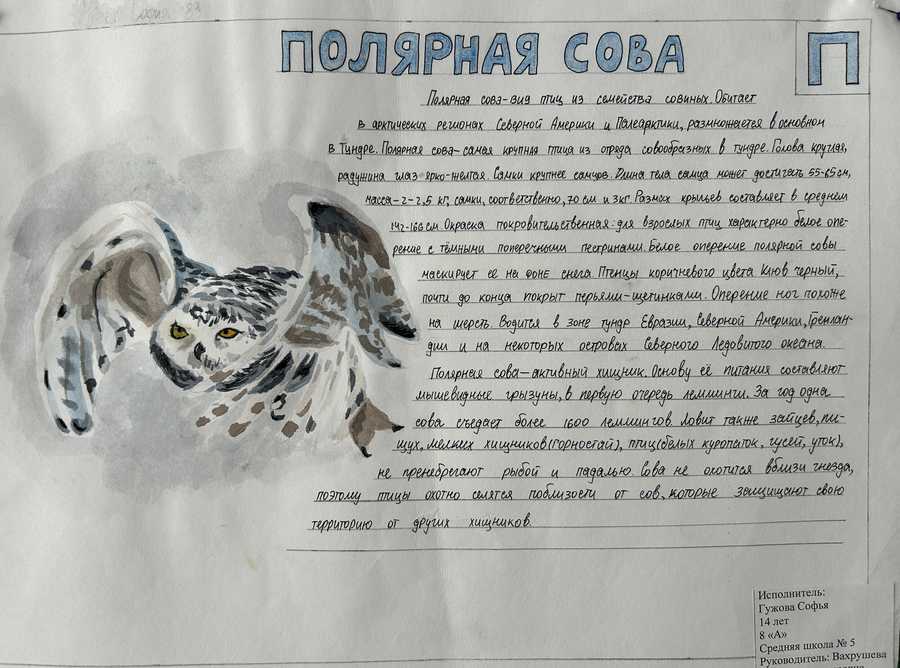 ПОЛЯРНАЯ СОВА
П
Полярная сова-вид птиц из семейства совиных. Обитает
в арктических регионах Северной Америки и Палеарктики, размножается в основном
в Тундре. Полярная сова-самая крупная птица из отряда совообразных в тундре. Голова круглая,
радужина глаз ярко-желтая. Самки крупнее самцов. Длина тела самца может достигать 55-65 см,
масса-2-2,5 кг, самки, соответственно, 70 см и 3кг. Размах крыльев составляет в среднем
142-166 см. Окраска покровительственная: для взрослых птиц характерно белое опе-
рение с тёмными поперечными пестринами. Белое оперение полярной совы
маскирует её на фоне снега. Птенцы коричневого цвета. Клюв черный,
почти до конца покрыт перьями-щетинками. Оперение ног похоже
на шерсть. Водится в зоне тундр Евразии, Северной Америки, Гренлан-
дии и на некоторых островах Северного Ледовитого океана.
Полярная сова-активный хищник. Основу её питания составляют
мышевидные грызуны, в первую очередь лемминги. За год одна
сова съедает более 1600 леммингов. Ловит также зайцев, пи-
щух, мелких хищников (горностай), птиц (белых куропаток, гусей, уток),
не пренебрегают рыбой и падалью. Сова не охотится вблизи гнезда,
поэтому птицы охотно селятся поблизости от сов, которые защищают свою
территорию от других хищников.
Исполнитель:
Гужова Софья
14 лет
8 «А»
Средняя школа № 5
Руководитель: Вахрушева